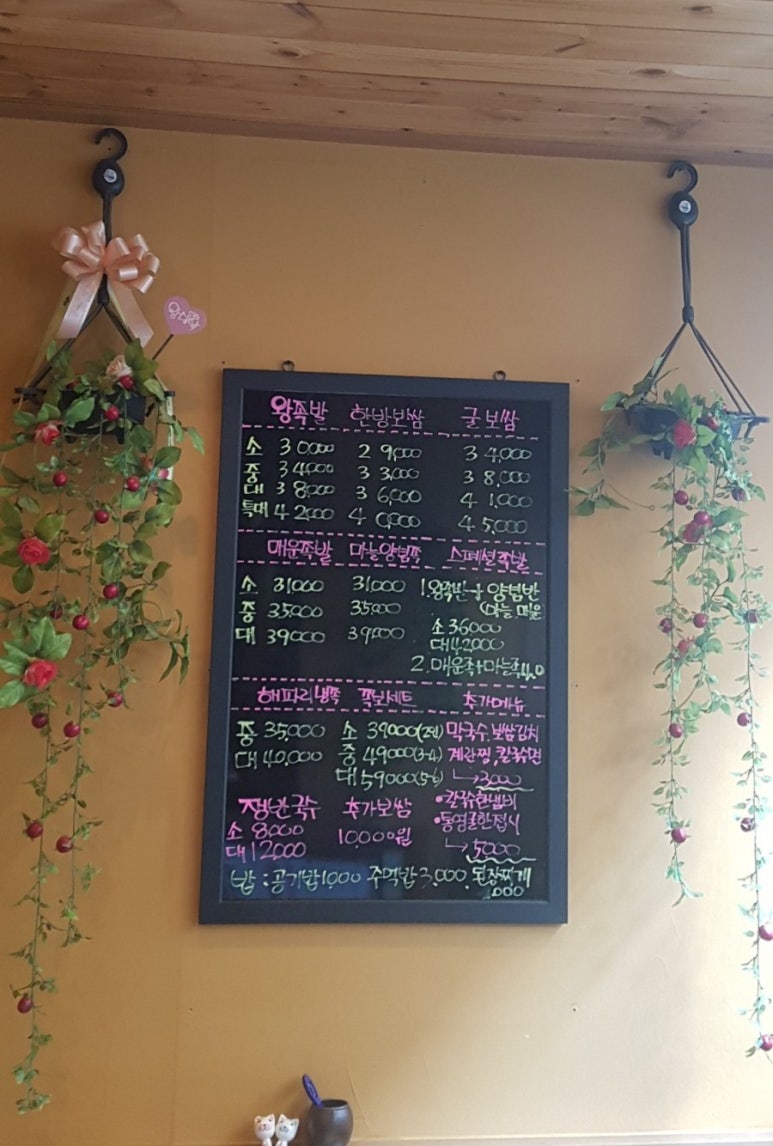 왕족발 한방보쌈 굴보쌈
소 30000 29,000 34,000
중 34000 33,000 38,000
대 38000 36,000 41,000
특대 42000 40,000 45,000
매운족발 마늘양념족 스페셜족발
소 31000 31,000 1.왕족반+양념반
중 35000 35,000 (마늘 매운
대 39000 39,000 소 36000
대 42000
2. 매운족+마늘족4.0
해파리냉족 족보세트 추가메뉴
중 35,000 소 39000 막국수 보쌈김치
대 40,000 중 49000(3-4) 계란찜, 칼국수면
대 59000(5-6) 3000
쟁반국수 추가보쌈 •칼국수한냄비
소 8,000 10,000원 •통영굴한접시
대 12,000 5000
밥 : 공기밥1,000 주먹밥3,000, 된장찌게